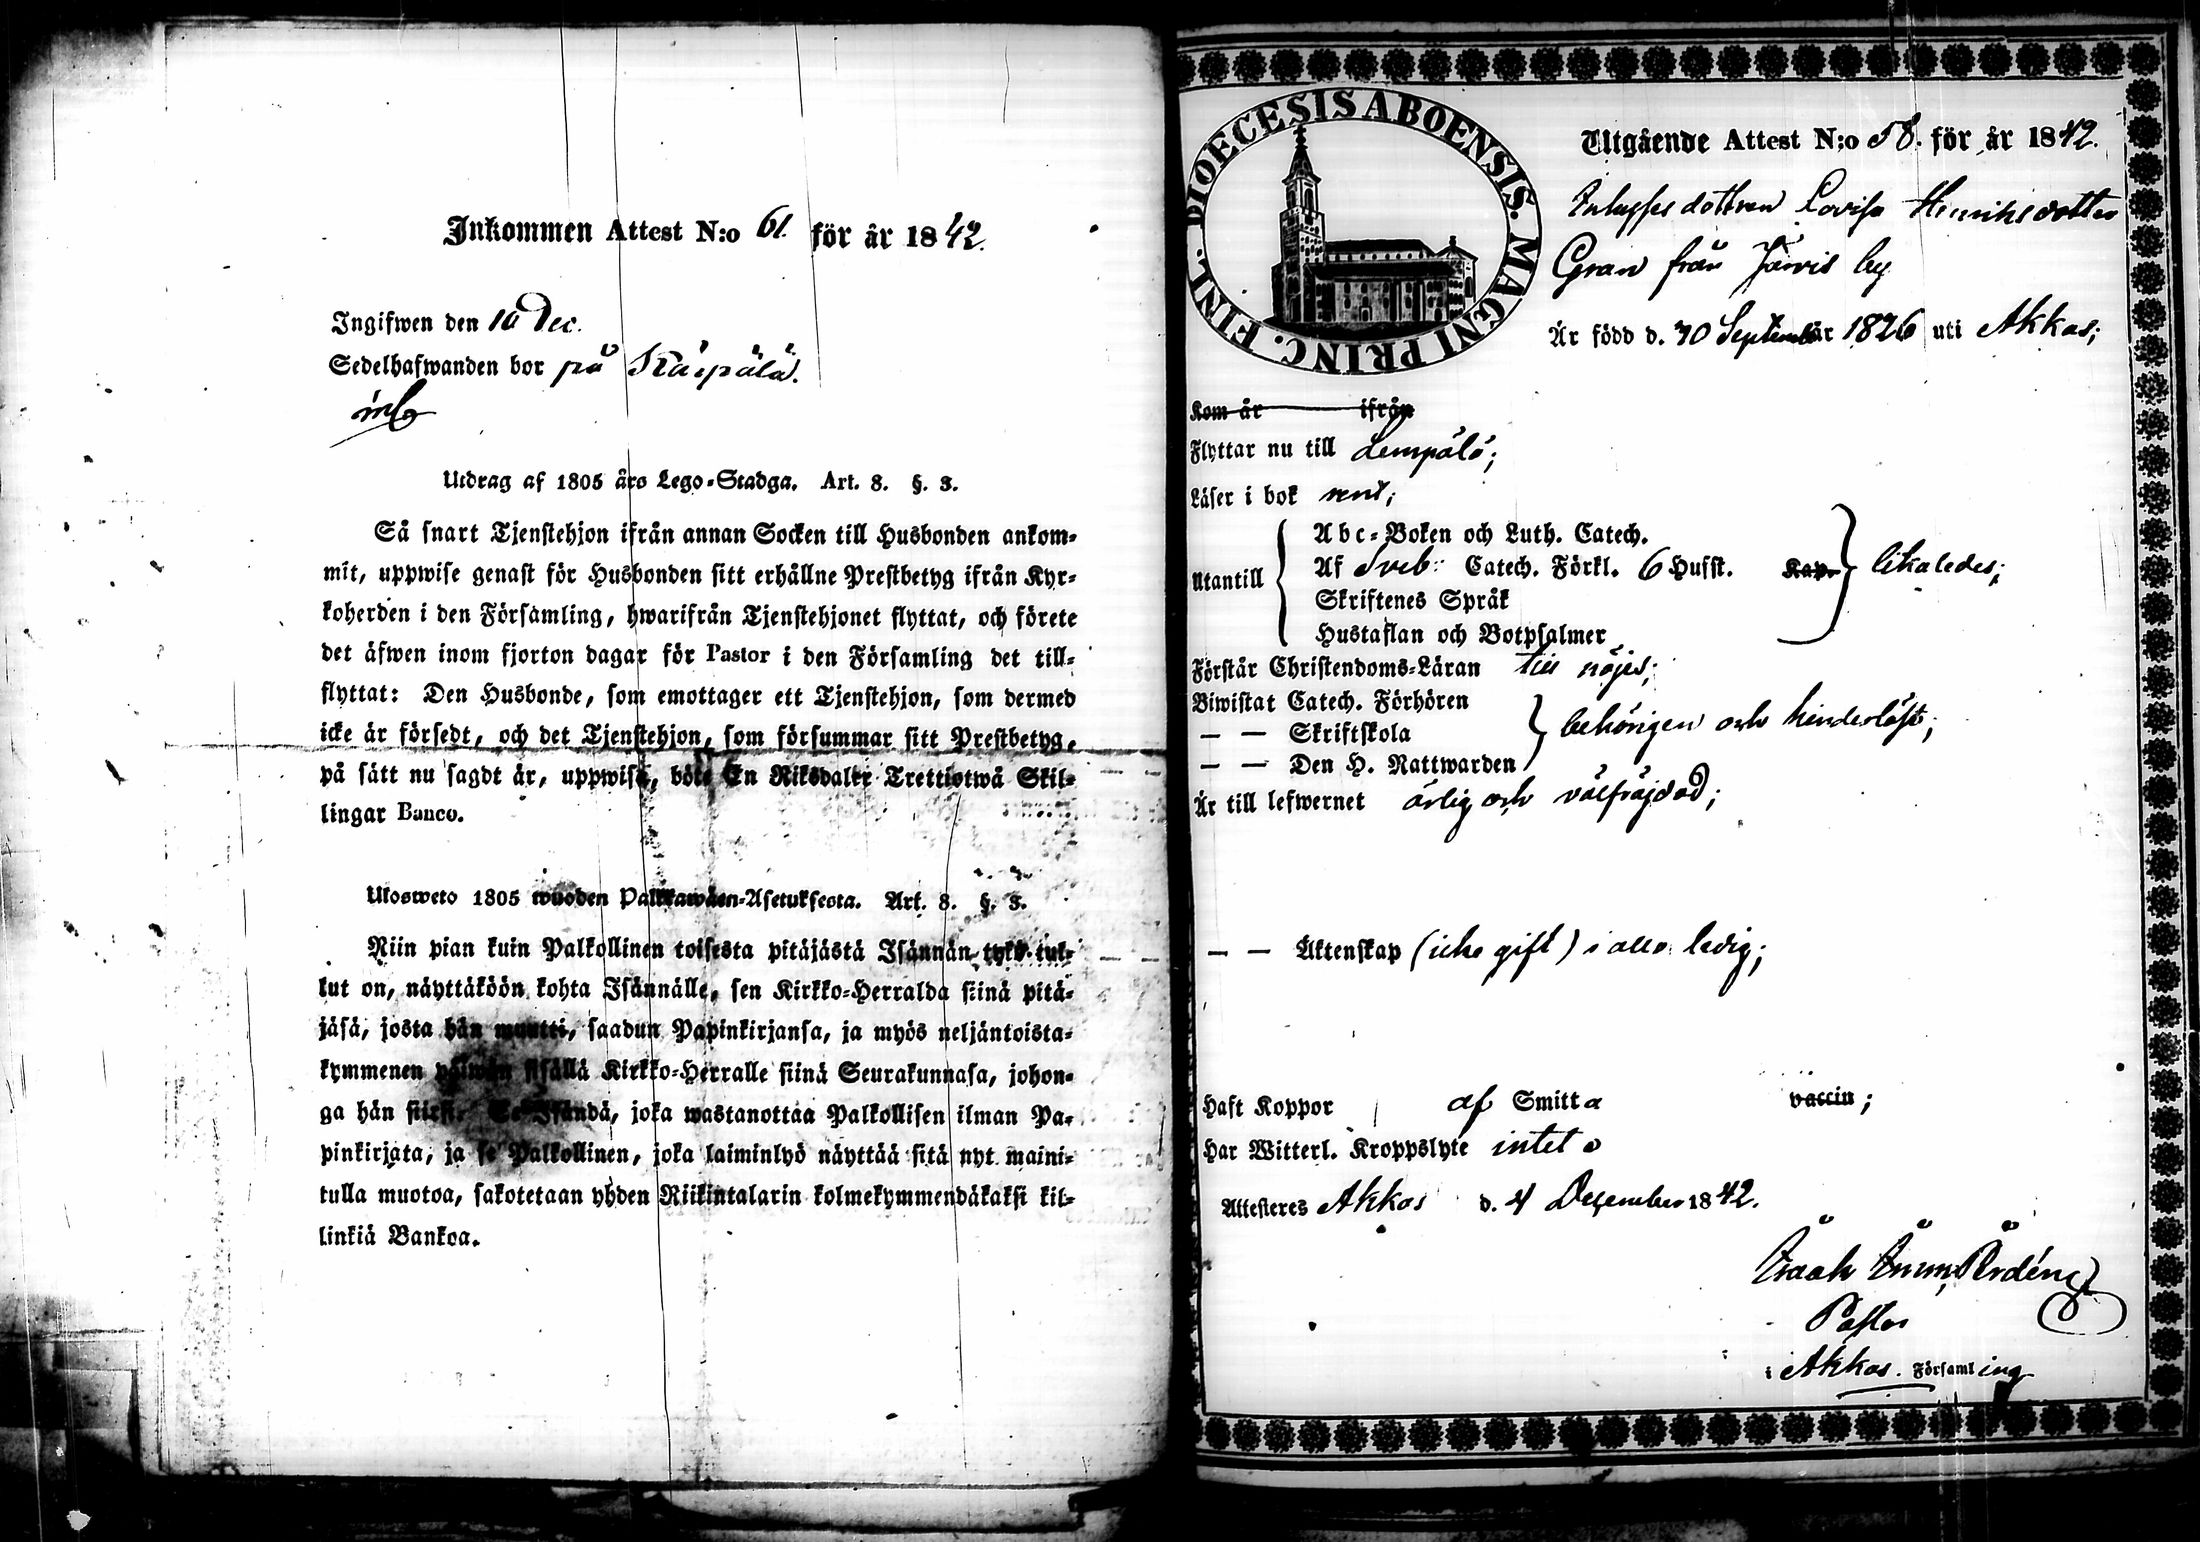 Inkommen Attest N:o 61. för år 1842.
Ingifwen den 10 Dec.
Sedelhafwanden bor på Käipälä.
Utdrag af 1805 års Lego-Stadga. Art. 8. §. 3.
Så snart Tjenstehjon ifrån annan Socken till Husbonden ankom-
mit, uppwise genast för Husbonden sitt erhållne Prestbetyg ifrån Kyr-
koherden i den Församling, hwarifrån Tjenstehjonet flyttat, och förete
det äfwen inom fjorton dagar för Pastor i den Församling det till-
flyttat: Den Husbonde, som emottager ett Tjenstehjon, som dermed
icke är försedt, och det Tjenstehjon, som försummar sitt Prestbetyg,
på sätt nu sagdt är, uppwisa, böte En Riksdaler Trettiotwå Skil-
lingar Banco.
Ulosweto 1805 wuoden Palkkawäen-Asetuksesta. Art. 8. §. 3.
Niin pian kuin Palkollinen toisesta pitäjästä Isännän tykö tul-
lut on, näyttäköön kohta Isännälle, sen Kirkko-Herralda siinä pitä-
jäsä, josta hän muutti, saadun Papinkirjansa, ja myös neljäntoista-
kymmenen päiwän sisällä Kirkko-Herralle siinä Seurakunnasa, johon-
ga hän siirsi. Se Isändä, joka wastanottaa Palkollisen ilman Pa-
pinkirjata, ja se Palkollinen, joka laiminlyö näyttää sitä nyt maini-
tulla muotoa, sakotetaan yhden Riikintalarin kolmekymmendäkaksi kil-
linkiä Bankoa.
DIOECESIS ABOENSIS. MAGNI PRINC. FINL.
Utgående Attest N:o 58. för år 1842.
Inhysesdottren Lovisa Henriksdotter
Gran från Järvis by
Är född d. 30 September 1826 uti Akkas;
Kom år ifrån
Flyttar nu till Lempälä;
Läser i bok rent;
Abc-Boken och Luth. Catech.
Utantill Af Sveb: Catech. Förkl. 6 Husst. Kap. likaledes;
Skriftenes Språk
Hustaflan och Botpsalmer
Förstår Christendoms-Läran till nöjes;
Biwistat Catech. Förhören
— — Skriftskola behörigen och hinderlöst;
— — Den H. Nattwarden
Är till lefwernet ärlig och välfräjdad;
— — Äktenskap (icke gift) i allo ledig;
Haft Koppor af Smitta vaccin;
Har Witterl. Kroppslyte inteta
Attesteres Akkas d. 4 December 1842.
Isaak Imm. Perdén
Pastor
i Akkas. Församling